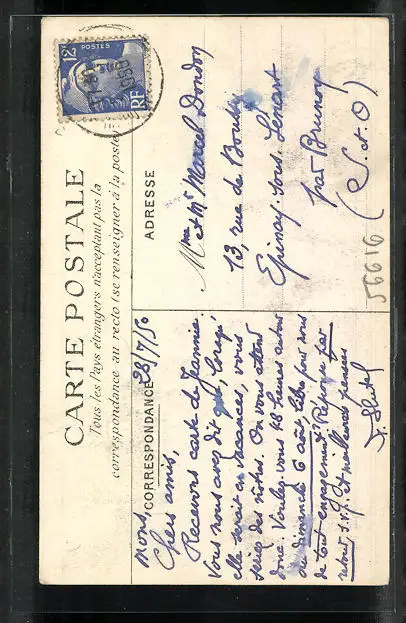 CARTE POSTALE
Tous les Pays étrangers n'acceptant pas la
correspondance au recto (se renseigner à la poste)
CORRESPONDANCE
ADRESSE
POSTES
12F
RF
Mons, 28/7/50
Chers amis,
Recevons carte de Jeannie.
Vous nous avez dit que, lorsqu'
elle serait en vacances, vous
seriez des nôtres. On vous attend
donc. Voulez-vous 48 heures autour
du dimanche 6 août, libre pour vous
de tout engagement? Réponse par
retour s.v.p. Et meilleures pensées
Mme et Mr Marcel Dondon
13, rue de Boulay
Epinay-sous-Sénart
par Brunoy
(S. et O.)
56616